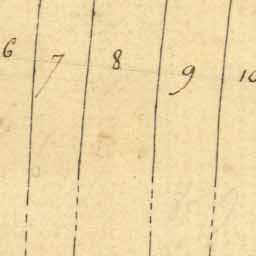 6 7 8 9 10